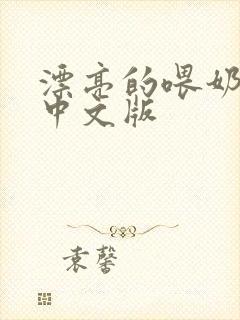 漂亮的喂奶
中文版
袁馨